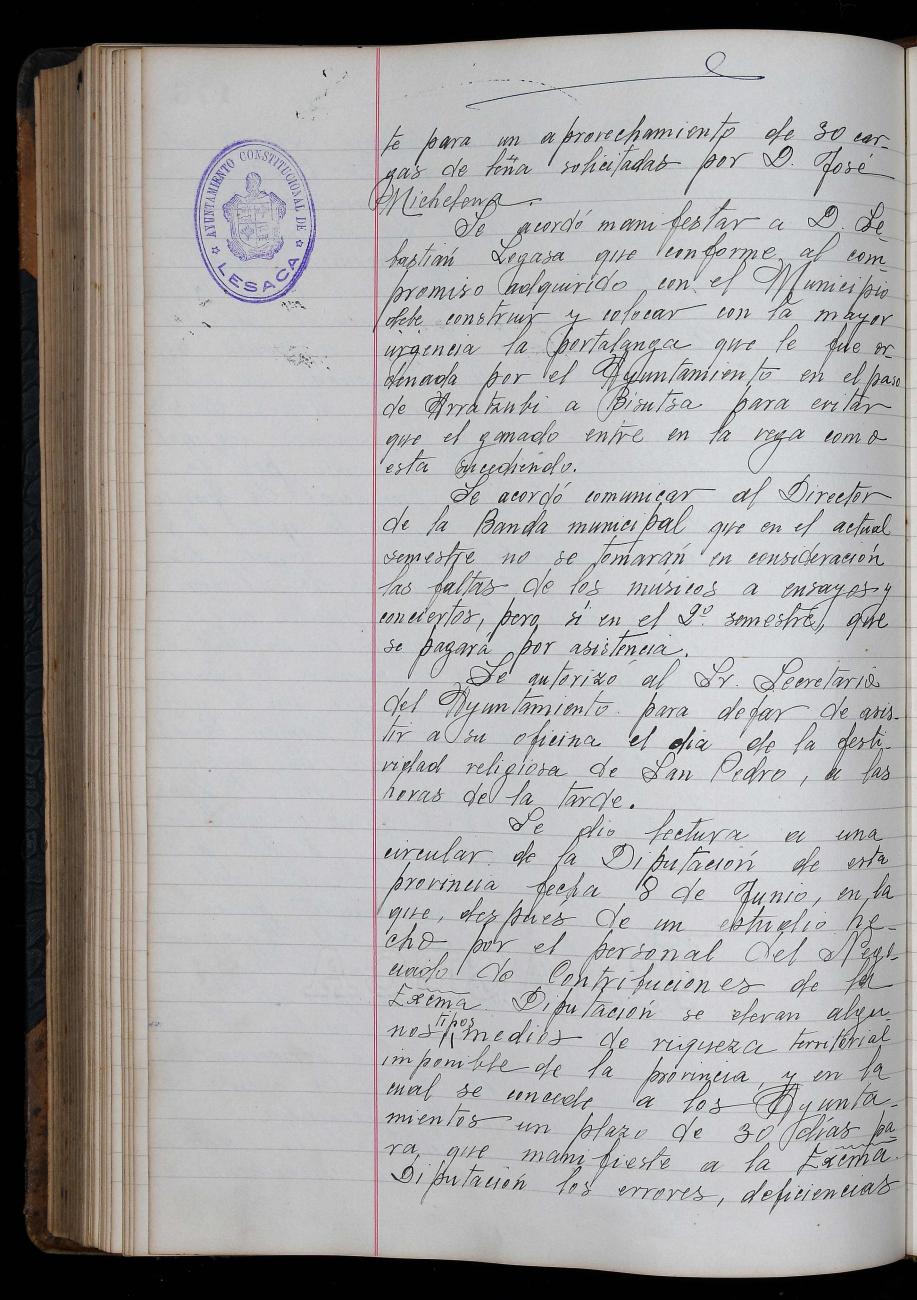 AYUNTAMIENTO CONSTITUCIONAL DE
LESACA
te para un aprovechamiento de 30 car-
gas de leña solicitadas por D. José
Michelena.
Se acordó manifestar a D. Se-
bastián Legasa que conforme al com-
promiso adquirido con el Municipio
debe construir y colocar con la mayor
urgencia la portalanga que le fue or-
denada por el Ayuntamiento en el paso
de Arratzubi a Bisutsa para evitar
que el ganado entre en la vega como
esta sucediendo.
Se acordó comunicar al Director
de la Banda municipal que en el actual
semestre no se tomarán en consideración
las faltas de los músicos a ensayos y
conciertos, pero si en el 2º semestre, que
se pagará por asistencia.
Se autorizó al Sr. Secretario
del Ayuntamiento para dejar de asis-
tir a su oficina el dia de la festi-
vidad religiosa de San Pedro, a las
horas de la tarde.
Se dio lectura a una
circular de la Diputación de esta
provincia fecha 8 de Junio, en la
que, después de un estudio he-
cho por el personal del Nego-
ciado de Contribuciones de la
Excma. Diputación se elevan algu-
nos tipos medios de riqueza territorial
imponible de la provincia, y en la
cual se concede a los Ayunta-
mientos un plazo de 30 dias pa-
ra que manifieste a la Excma.
Diputación los errores, deficiencias